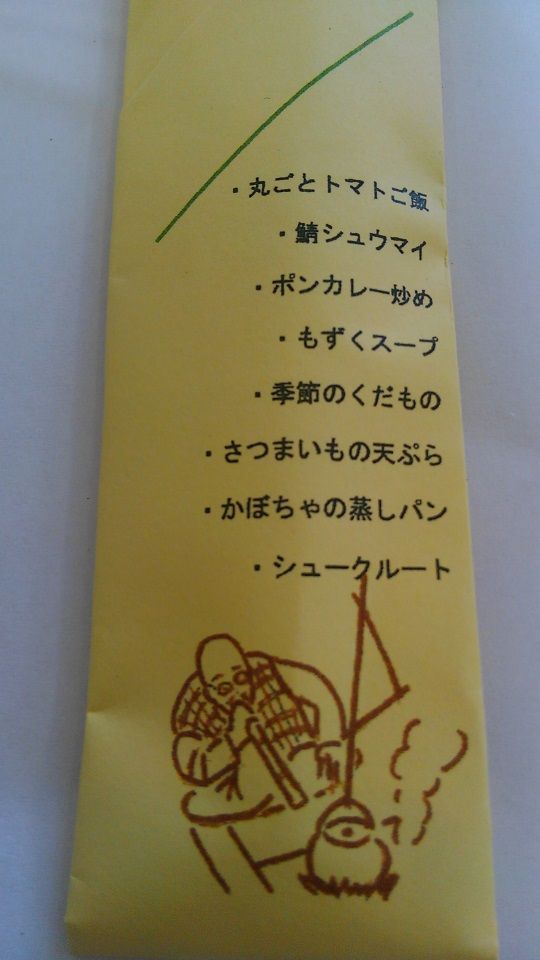 ・丸ごとトマトご飯
・鯖シュウマイ
・ポンカレー炒め
・もずくスープ
・季節のくだもの
・さつまいもの天ぷら
・かぼちゃの蒸しパン
・シュークルート